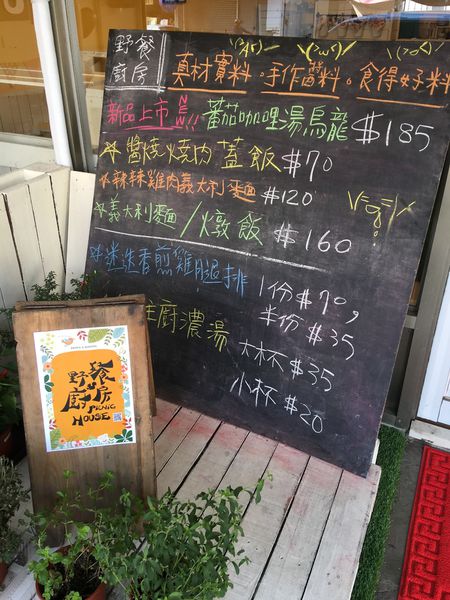 野餐
廚房
真材實料。手作醬料。食得好料
新品上市 NEW!! 蕃茄咖哩湯烏龍 $185
醬燒燒肉蓋飯 $70
辣辣雞肉義大利麵 $120
義大利麵/燉飯 $160
迷迭香煎雞腿排 1份$70,
半份$35
主廚濃湯 大杯$35
小杯$20
野餐
廚房
PICNIC
HOUSE